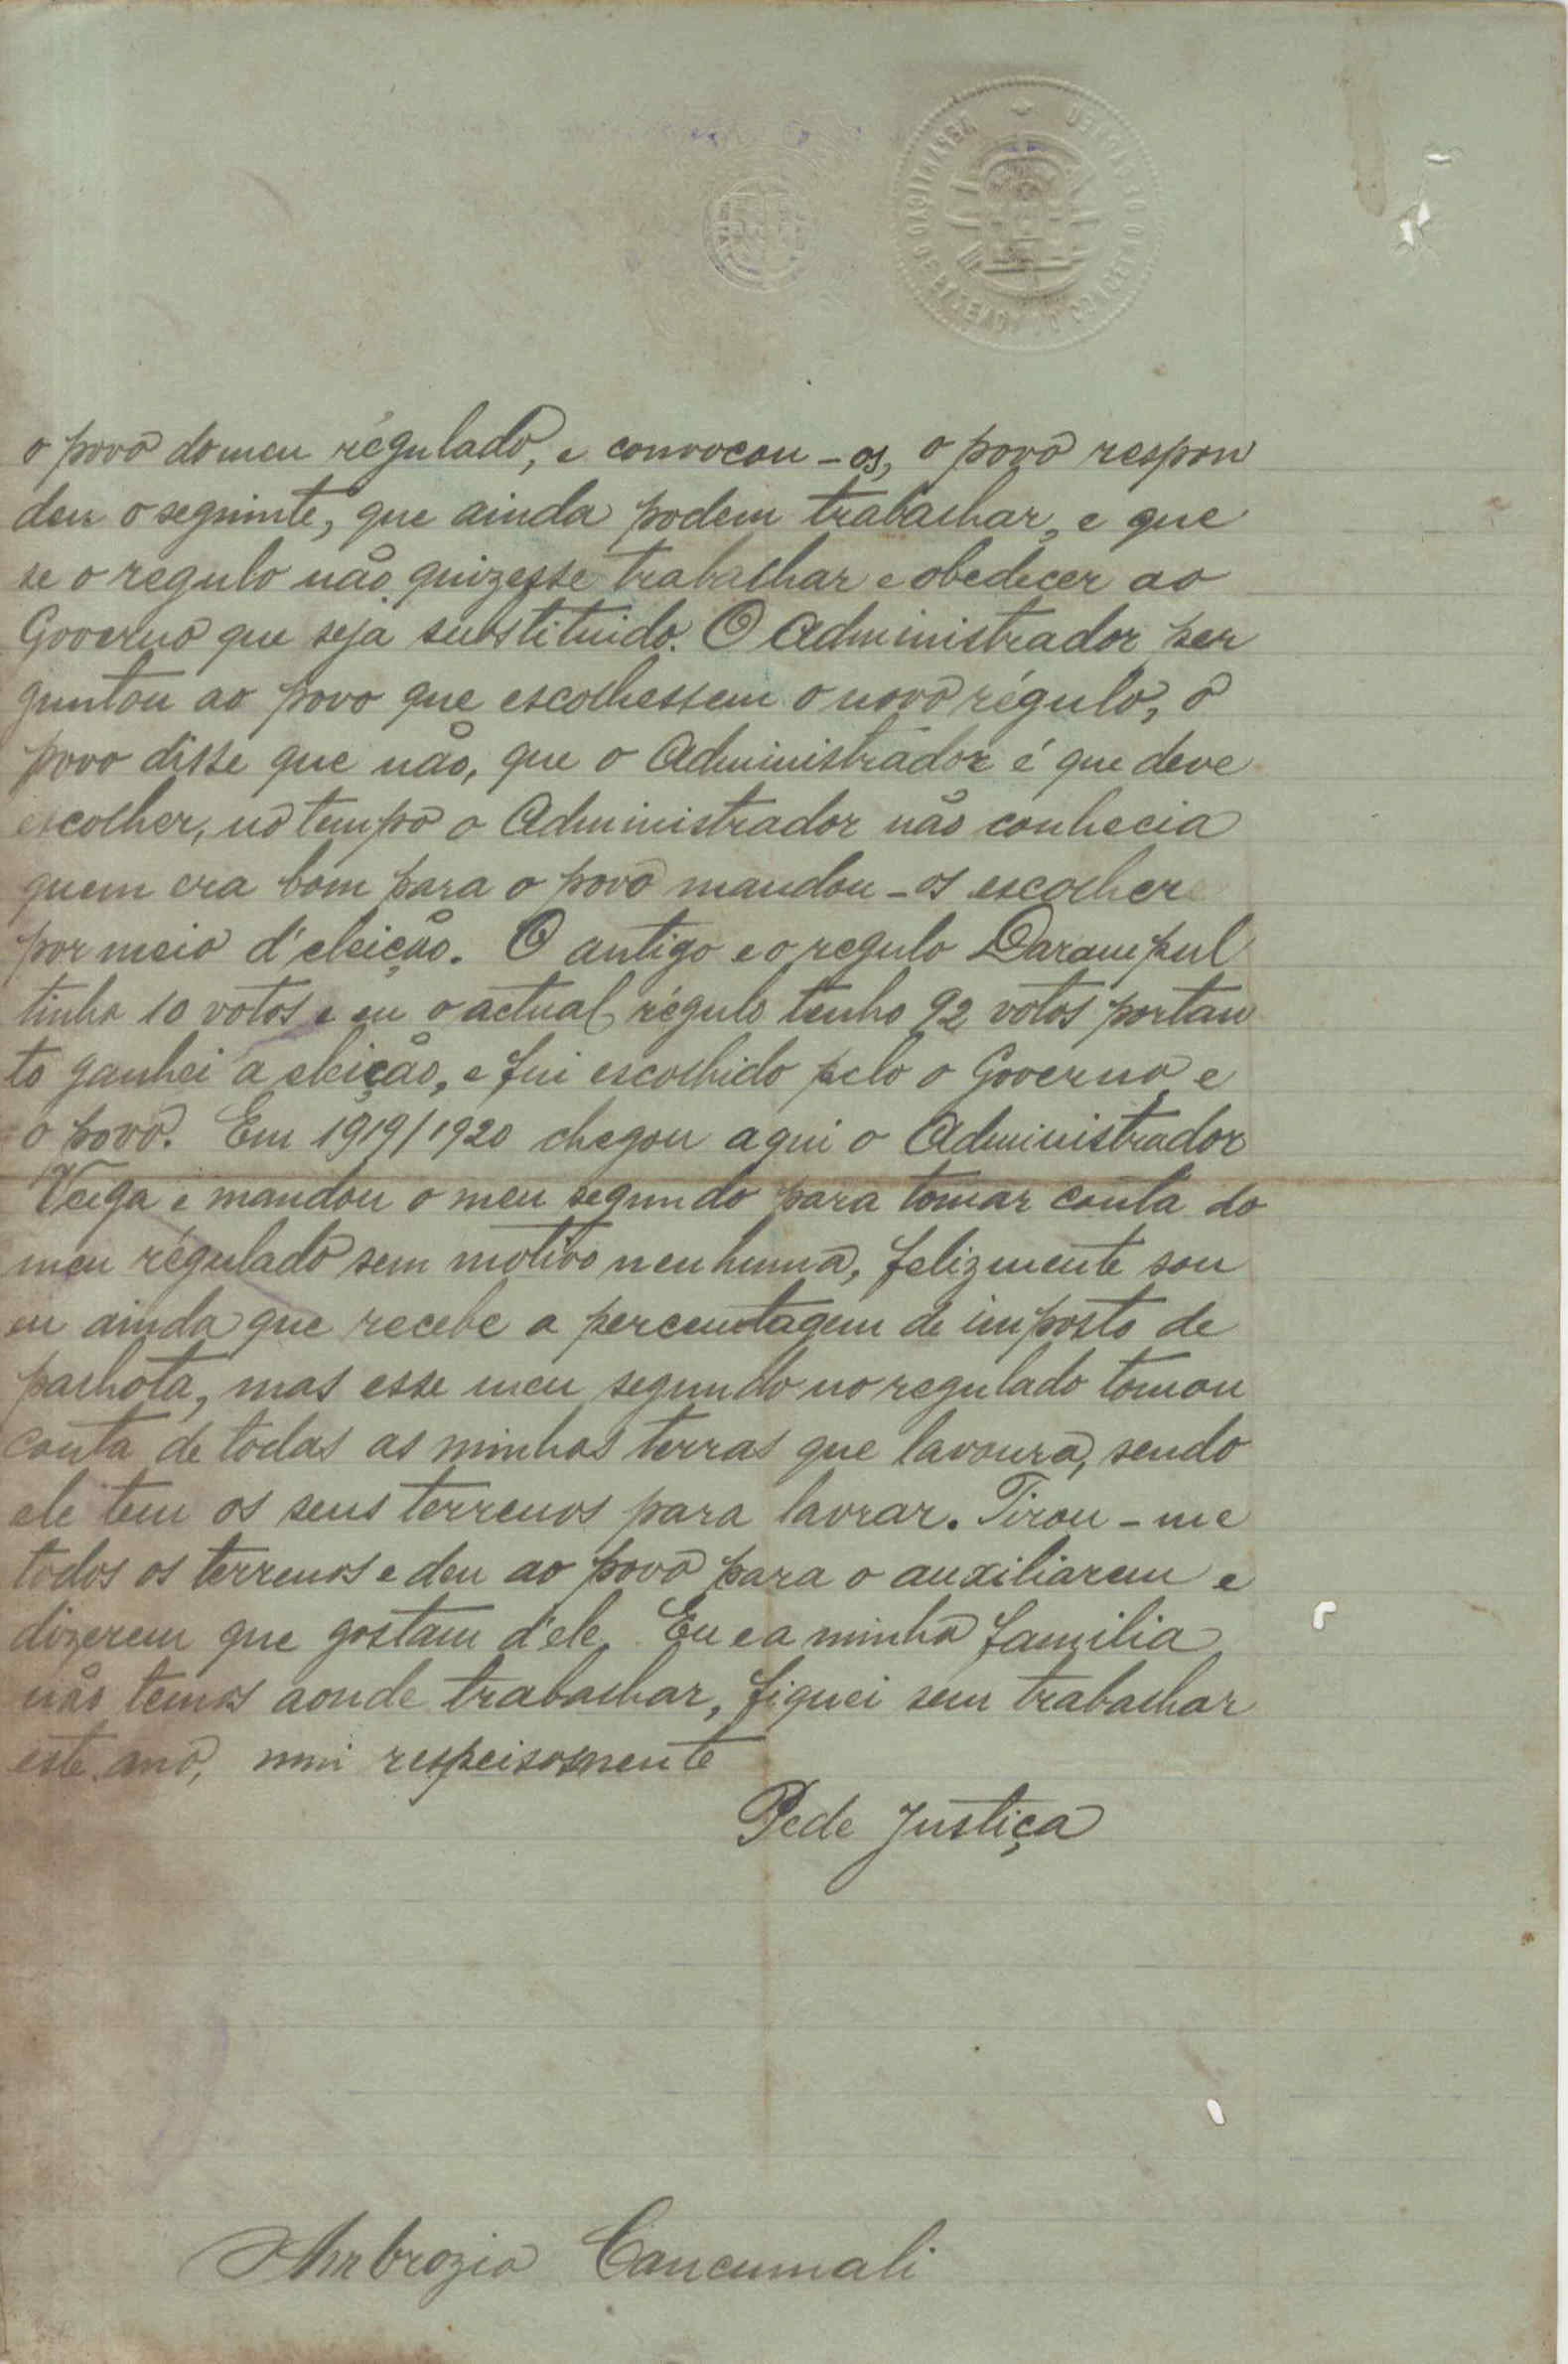 o povo do meu régulado, e convocou-os, o povo respon
deu o seguinte, que ainda podem trabalhar, e que
se o regulo não quizesse trabalhar e obedecer ao
Governo que seja substituido. O Administrador per
guntou ao povo que escolhessem o novo régulo, o
povo disse que não, que o Administrador é que deve
escolher, no tempo o Administrador não conhecia
quem era bom para o povo mandou-os escolher
por meio d'eleição. O antigo e o regulo Darampul
tinha 10 votos e eu o actual régulo tenho 92 votos portan
to ganhei a eleição, e fui escolhido pelo o Governo e
o povo. Em 1919/1920 chegou aqui o Administrador
Veiga e mandou o meu segundo para tomar conta do
meu régulado sem motivo nenhuma, felizmente sou
eu ainda que recebe a percentagem de imposto de
palhota, mas esse meu segundo no regulado tomou
conta de todas as minhas terras que lavoura, sendo
ele tem os seus terrenos para lavrar. Tirou-me
todos os terrenos e deu ao povo para o auxiliarem e
dizerem que gostam d'ele. Eu e a minha familia
não temos aonde trabalhar, fiquei sem trabalhar
este ano, mui respeisosmente
Pede Justiça
Ambrozio Cancumali